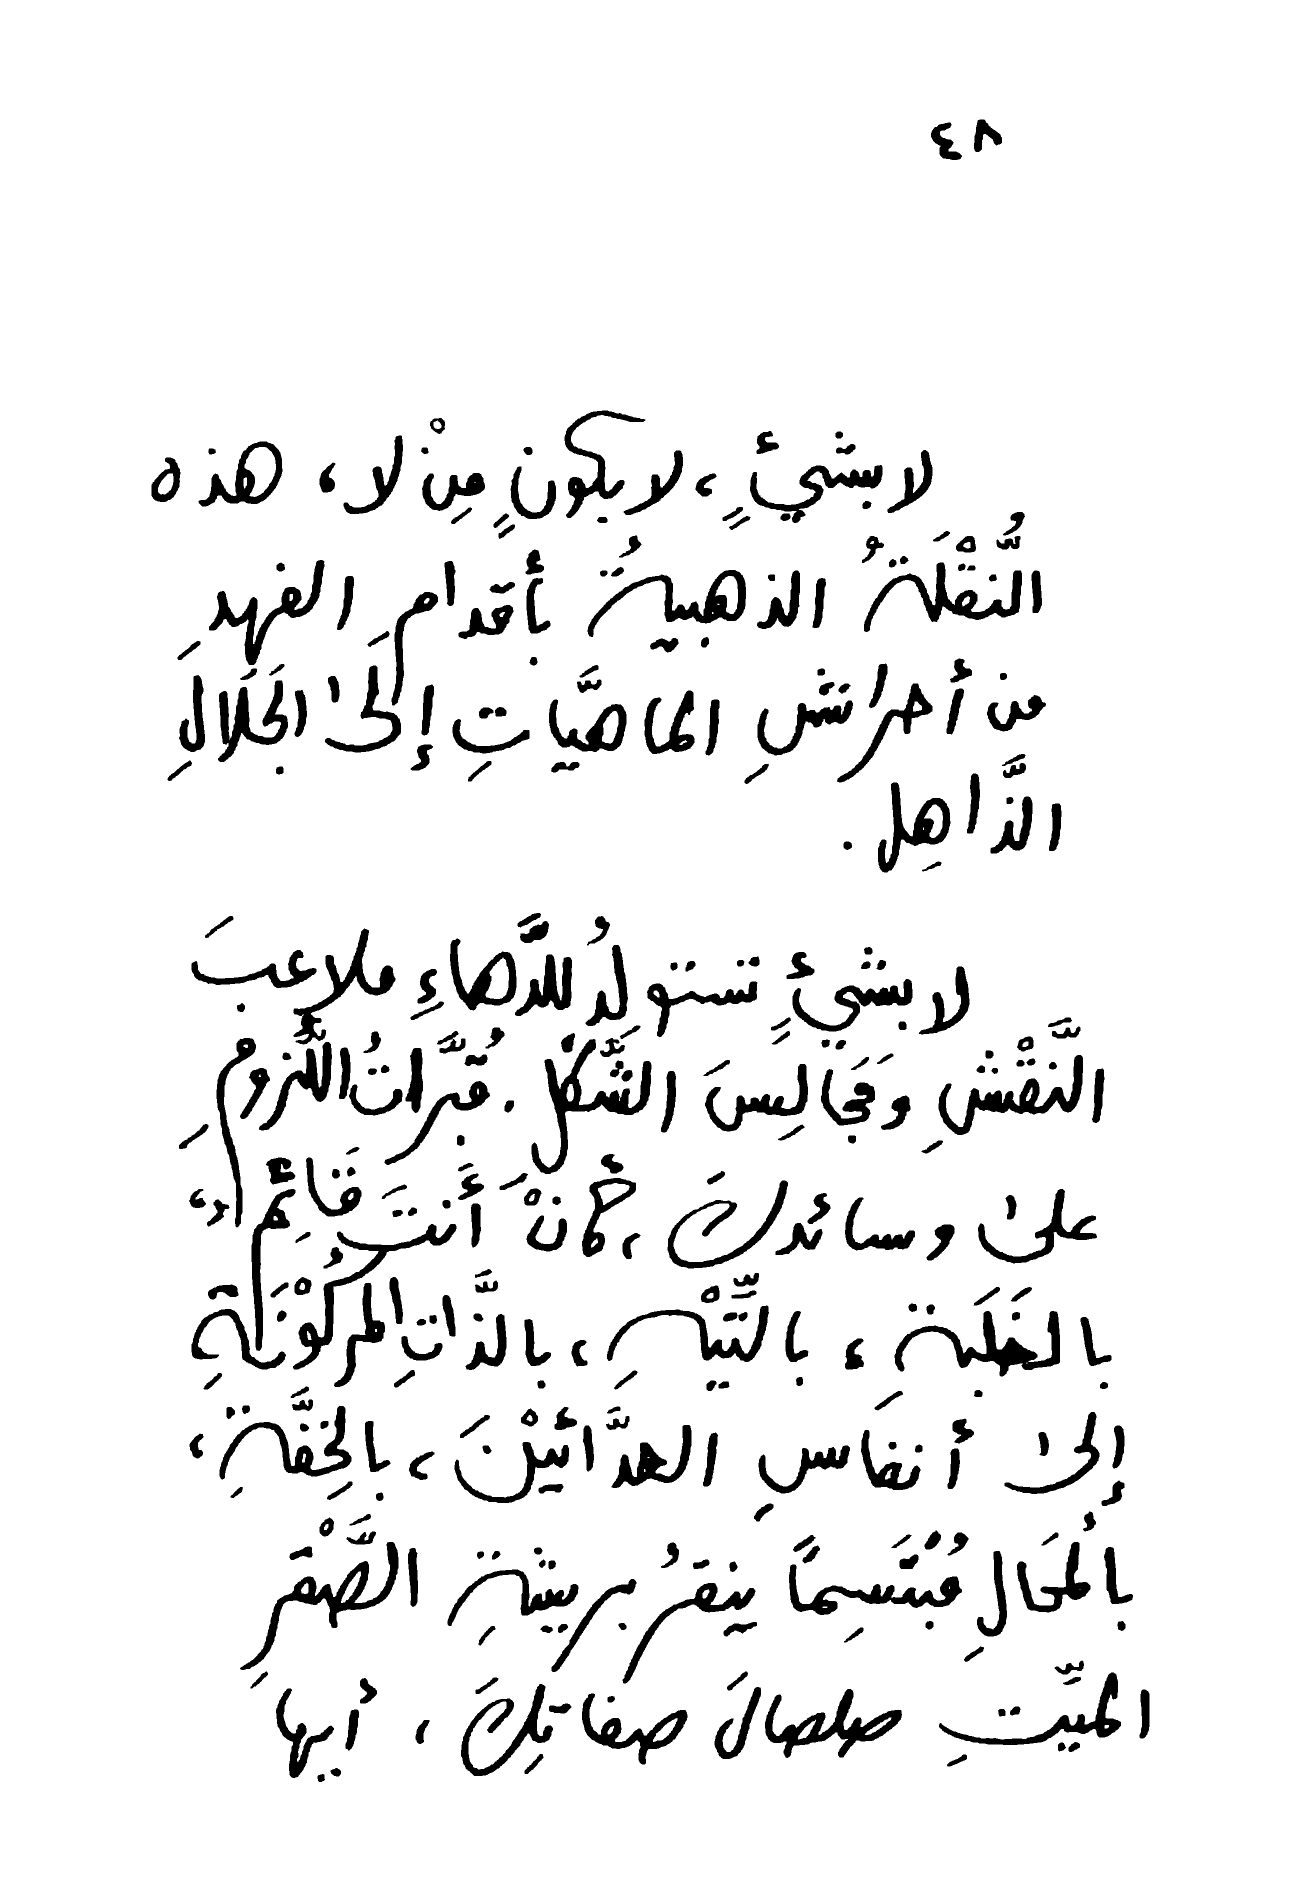 ٤٨
لا بشيءٍ، لا بكونٍ مِنْ لا، هذه
النُّقْلَةُ الذهبيةُ بأقدام الفهدِ
من أحراشِ الماهيَّاتِ إلَى الجَلَالِ
الذَّاهِل.
لا بشيءٍ تستولدُ للدَّهاءِ ملاعبَ
النَّقْشِ ومجالِسَ الشَّكْل. قُبَّراتُ اللُّزومِ
على وسائدكَ، كأنْ أَنتَ قَائِم
بالخَلَبَةِ، بالتِّيْهِ، بالذَّاتِ المركُوْنَةِ
إلى أنفاسِ الهدَّائيْنَ، بالخِفَّةِ،
بالُمحَالِ مُبْتَسِمًا ينقرُ بريشةِ الصَّقْرِ
الميِّتِ صلصالَ صفاتِكَ، أيها